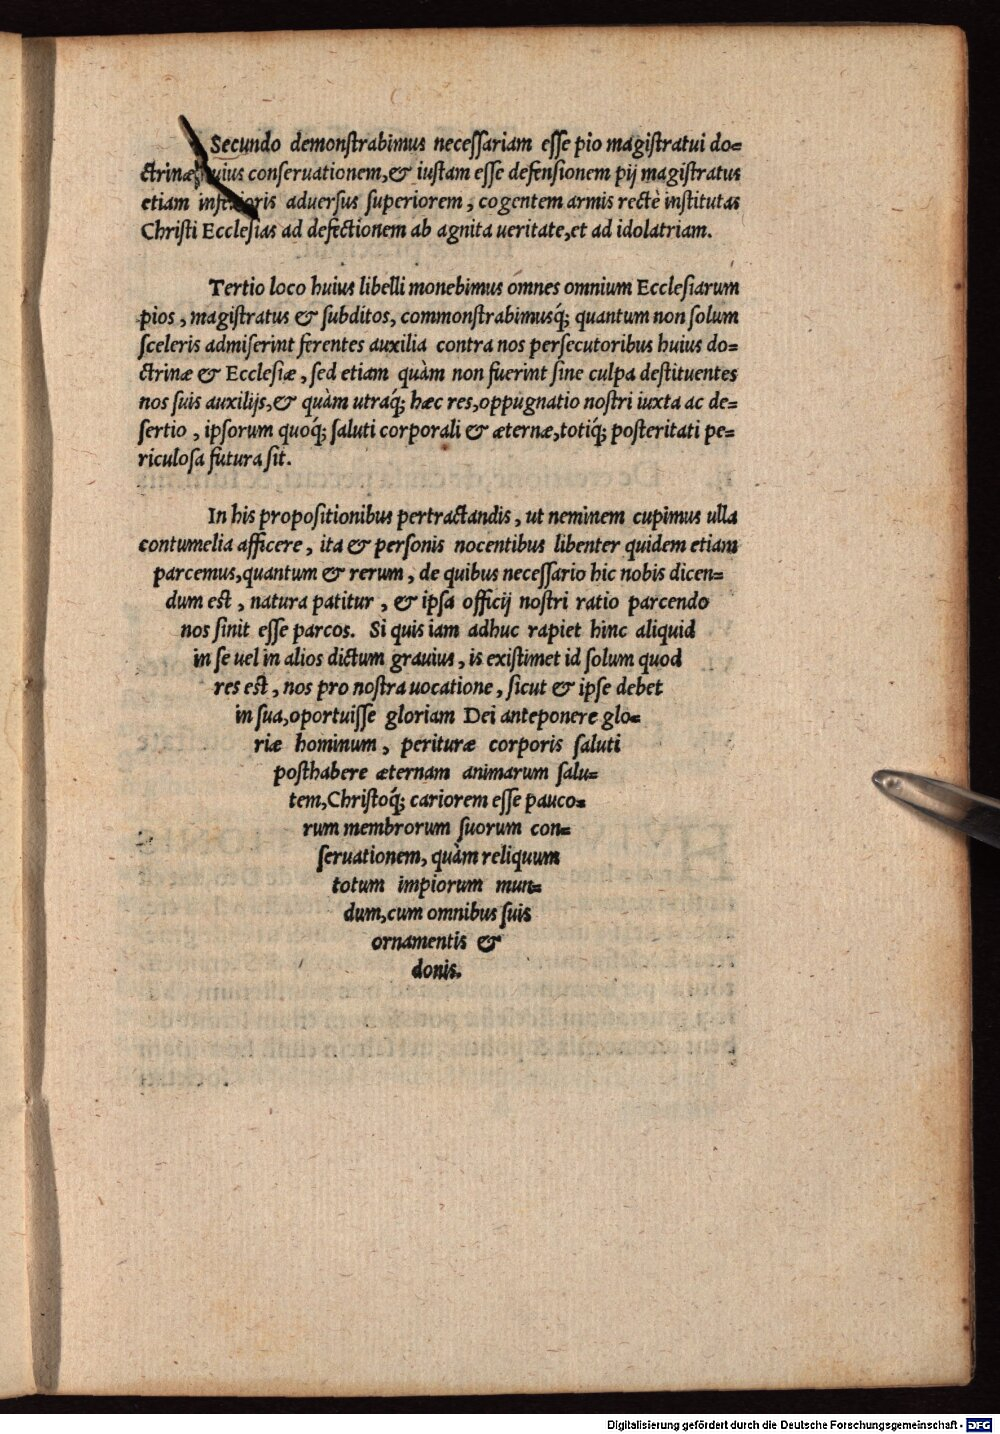 Secundo demonſtrabimus neceſſariam eſſe pio magiſtratui do=
ctrinæ huius conſeruationem,& iuſtam eſſe defenſionem pij magiſtratus
etiam inferioris aduerſus ſuperiorem, cogentem armis rectè inſtitutas
Chriſti Eccleſias ad defectionem ab agnita ueritate,et ad idolatriam.
Tertio loco huius libelli monebimus omnes omnium Eccleſiarum
pios, magiſtratus & ſubditos, commonſtrabimusq́; quantum non ſolum
ſceleris admiſerint ferentes auxilia contra nos perſecutoribus huius do=
ctrinæ & Eccleſiæ, ſed etiam quàm non fuerint ſine culpa deſtituentes
nos ſuis auxilijs,& quàm utraq́; hæc res,oppugnatio noſtri iuxta ac de=
ſertio, ipſorum quoq́; ſaluti corporali & æternæ,totiq́; poſteritati pe=
riculoſa futura ſit.
In his propoſitionibus pertractandis, ut neminem cupimus ulla
contumelia afficere, ita & perſonis nocentibus libenter quidem etiam
parcemus,quantum & rerum, de quibus neceſſario hic nobis dicen=
dum eſt, natura patitur, & ipſa officij noſtri ratio parcendo
nos ſinit eſſe parcos. Si quis iam adhuc rapiet hinc aliquid
in ſe uel in alios dictum grauius, is exiſtimet id ſolum quod
res eſt, nos pro noſtra uocatione, ſicut & ipſe debet
in ſua,oportuiſſe gloriam Dei anteponere glo=
riæ hominum, perituræ corporis ſaluti
poſthabere æternam animarum ſalu=
tem,Chriſtoq́; cariorem eſſe pauco=
rum membrorum ſuorum con=
ſeruationem, quàm reliquum
totum impiorum mun=
dum,cum omnibus ſuis
ornamentis &
donis.
Digitalisierung gefördert durch die Deutsche Forschungsgemeinschaft - DFG